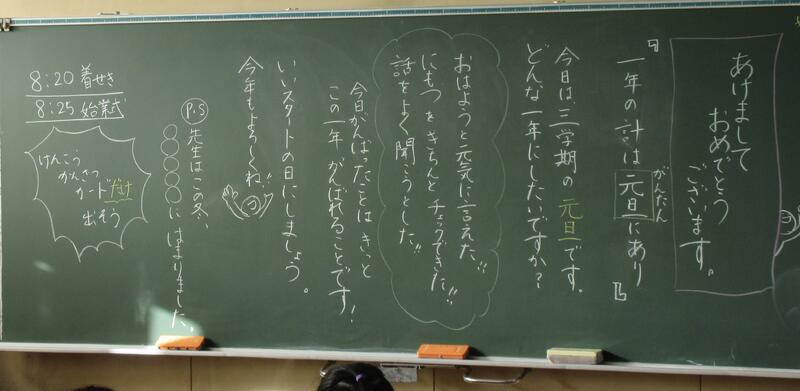 あけまして
おめでとう
ございます。
『一年の計は元旦にあり』
がんたん
今日は、三学期の元旦です。
どんな一年にしたいですか?
おはようと元気に言えた!!
にもつをきちんとチェックできた!!
話をよく聞こうとした!!
今日がんばったことは きっと
この一年 がんばれることです!
いいスタートの日にしましょう。
今年もよろしくね!!
P.S
先生はこの冬、
○○○○○に はまりました。
8:20 着せき
8:25 始業式
けんこう
かんさつ
カードだけ
出そう